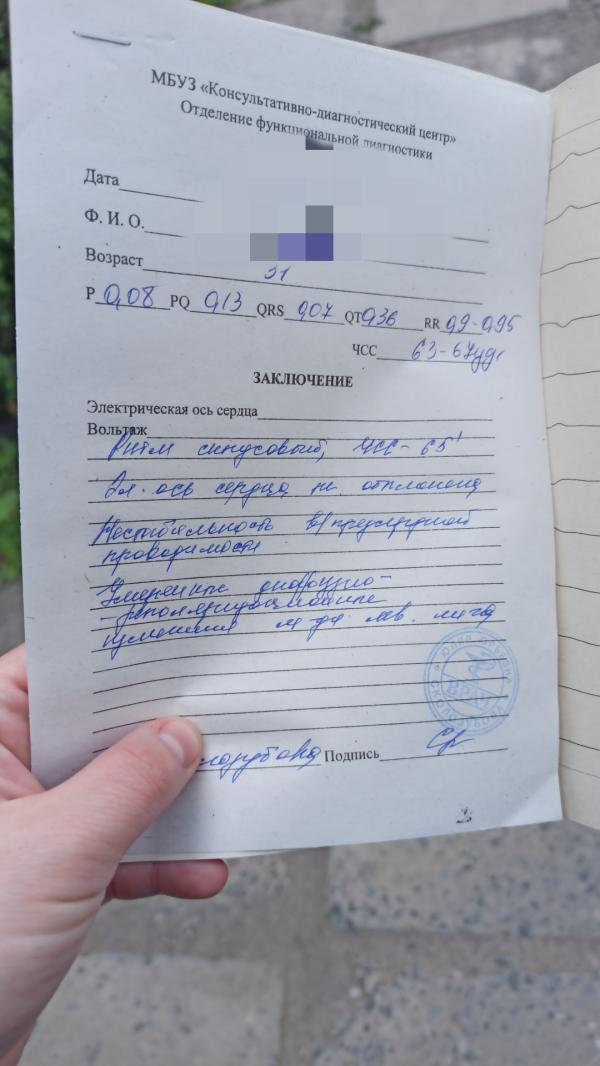 МБУЗ «Консультативно-диагностический центр»
Отделение функциональной диагностики
Дата
Ф. И. О.
Возраст 31
P 0,08 PQ 0,13 QRS 0,07 QT 0,36 RR 0,9-0,95
ЧСС 63-67уд
ЗАКЛЮЧЕНИЕ
Электрическая ось сердца
Вольтаж
Ритм синусовый, ЧСС - 65'
Эл. ось сердца не отклонена
Нестабильность в/предсердной
проводимости
Умеренные диффузно-
-реполяризационные
изменения м-да лев. жел-ка
ВРАЧ
Подпись